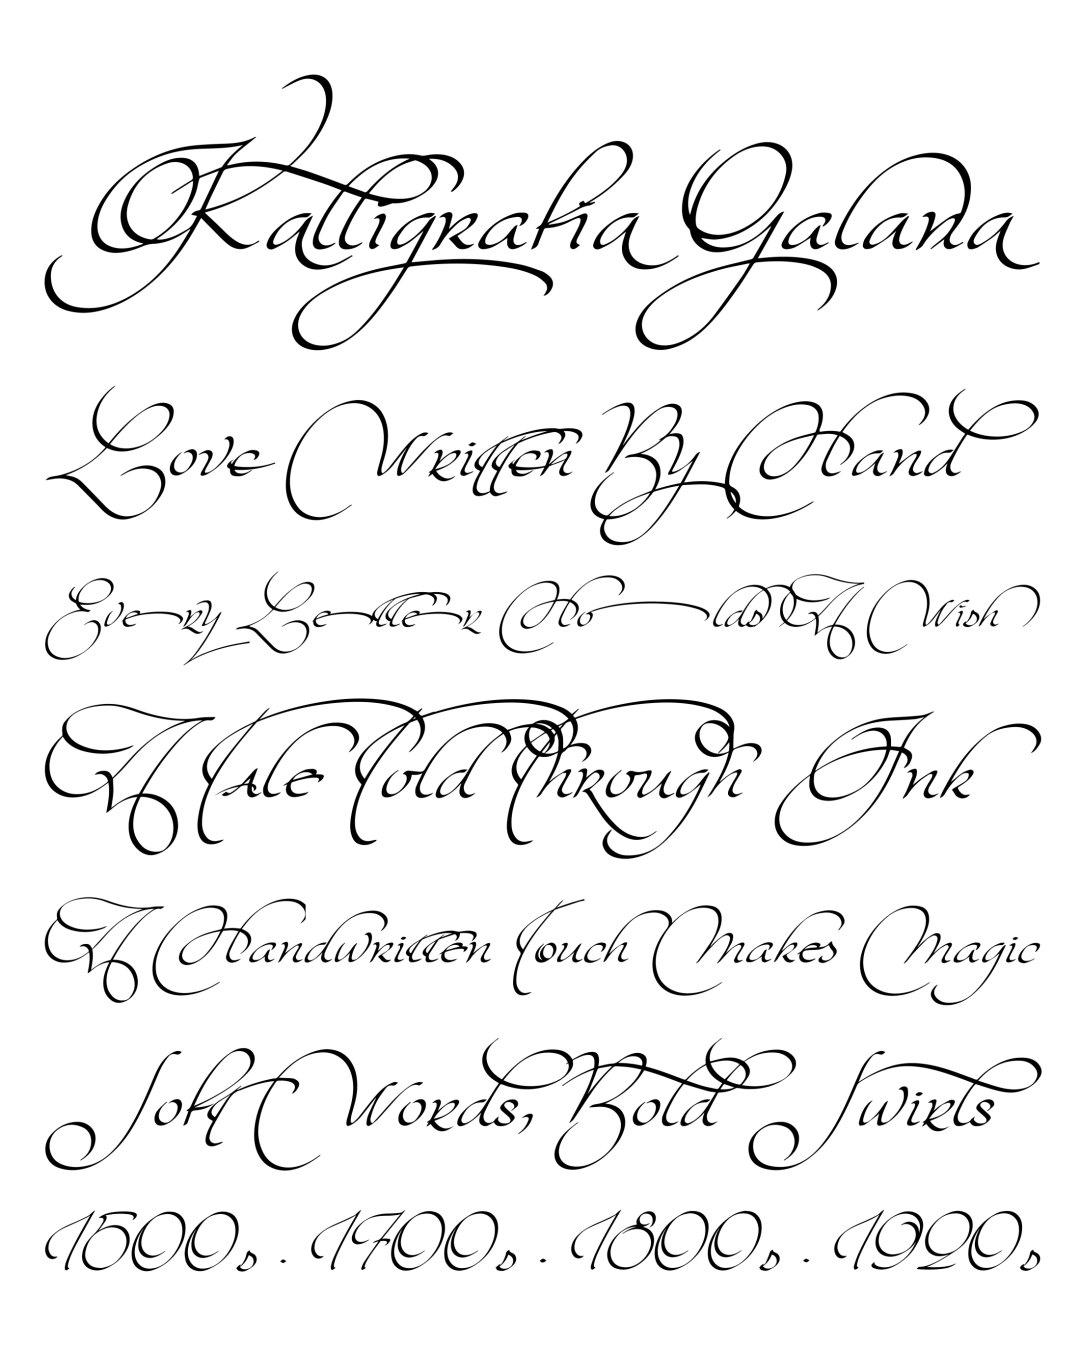 Kalligrafia Galana
Love Written By Hand
Every Letter Holds A Wish
A Tale Told Through Ink
A Handwritten Touch Makes Magic
Soft Words, Bold Swirls
1500s . 1700s . 1800s . 1920s